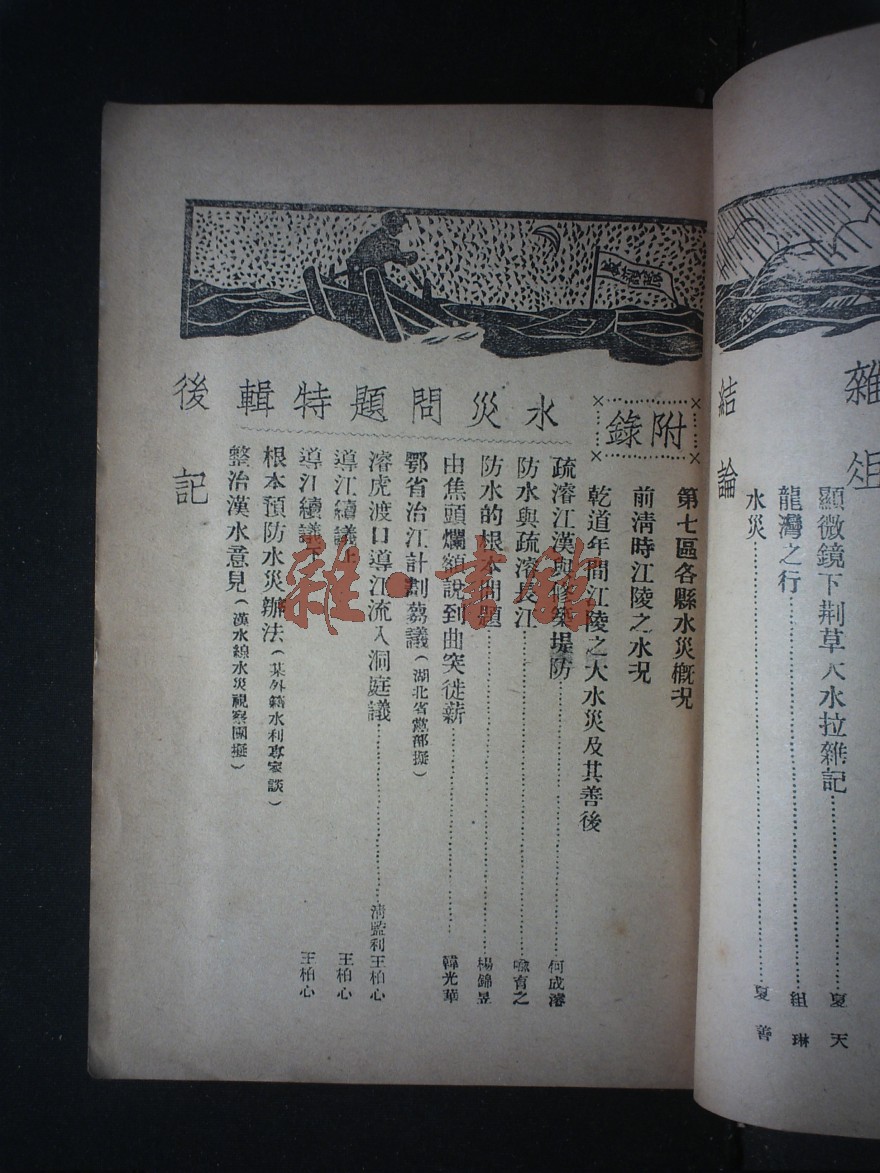 雜俎
顯微鏡下荆草大水拉雜記……夏天
龍灣之行……組琳
水災……夏善
結論
附錄
第七區各縣水災概況
前淸時江陵之水況
乾道年間江陵之大水災及其善後
水災問題特輯
疏濬江漢與修築堤防……何成濬
防水與疏濬長江……喩育之
防水的根本問題……楊錦昱
由焦頭爛額說到曲突徙薪……韓光華
鄂省治江計劃芻議(湖北省黨部擬)
濬虎渡口導江流入洞庭議……淸監利王柏心
導江續議上 王柏心
導江續議下 王柏心
根本預防水災辦法(某外籍水利專家談)
整治漢水意見(漢水線水災視察團擬)
後記
雜·書館